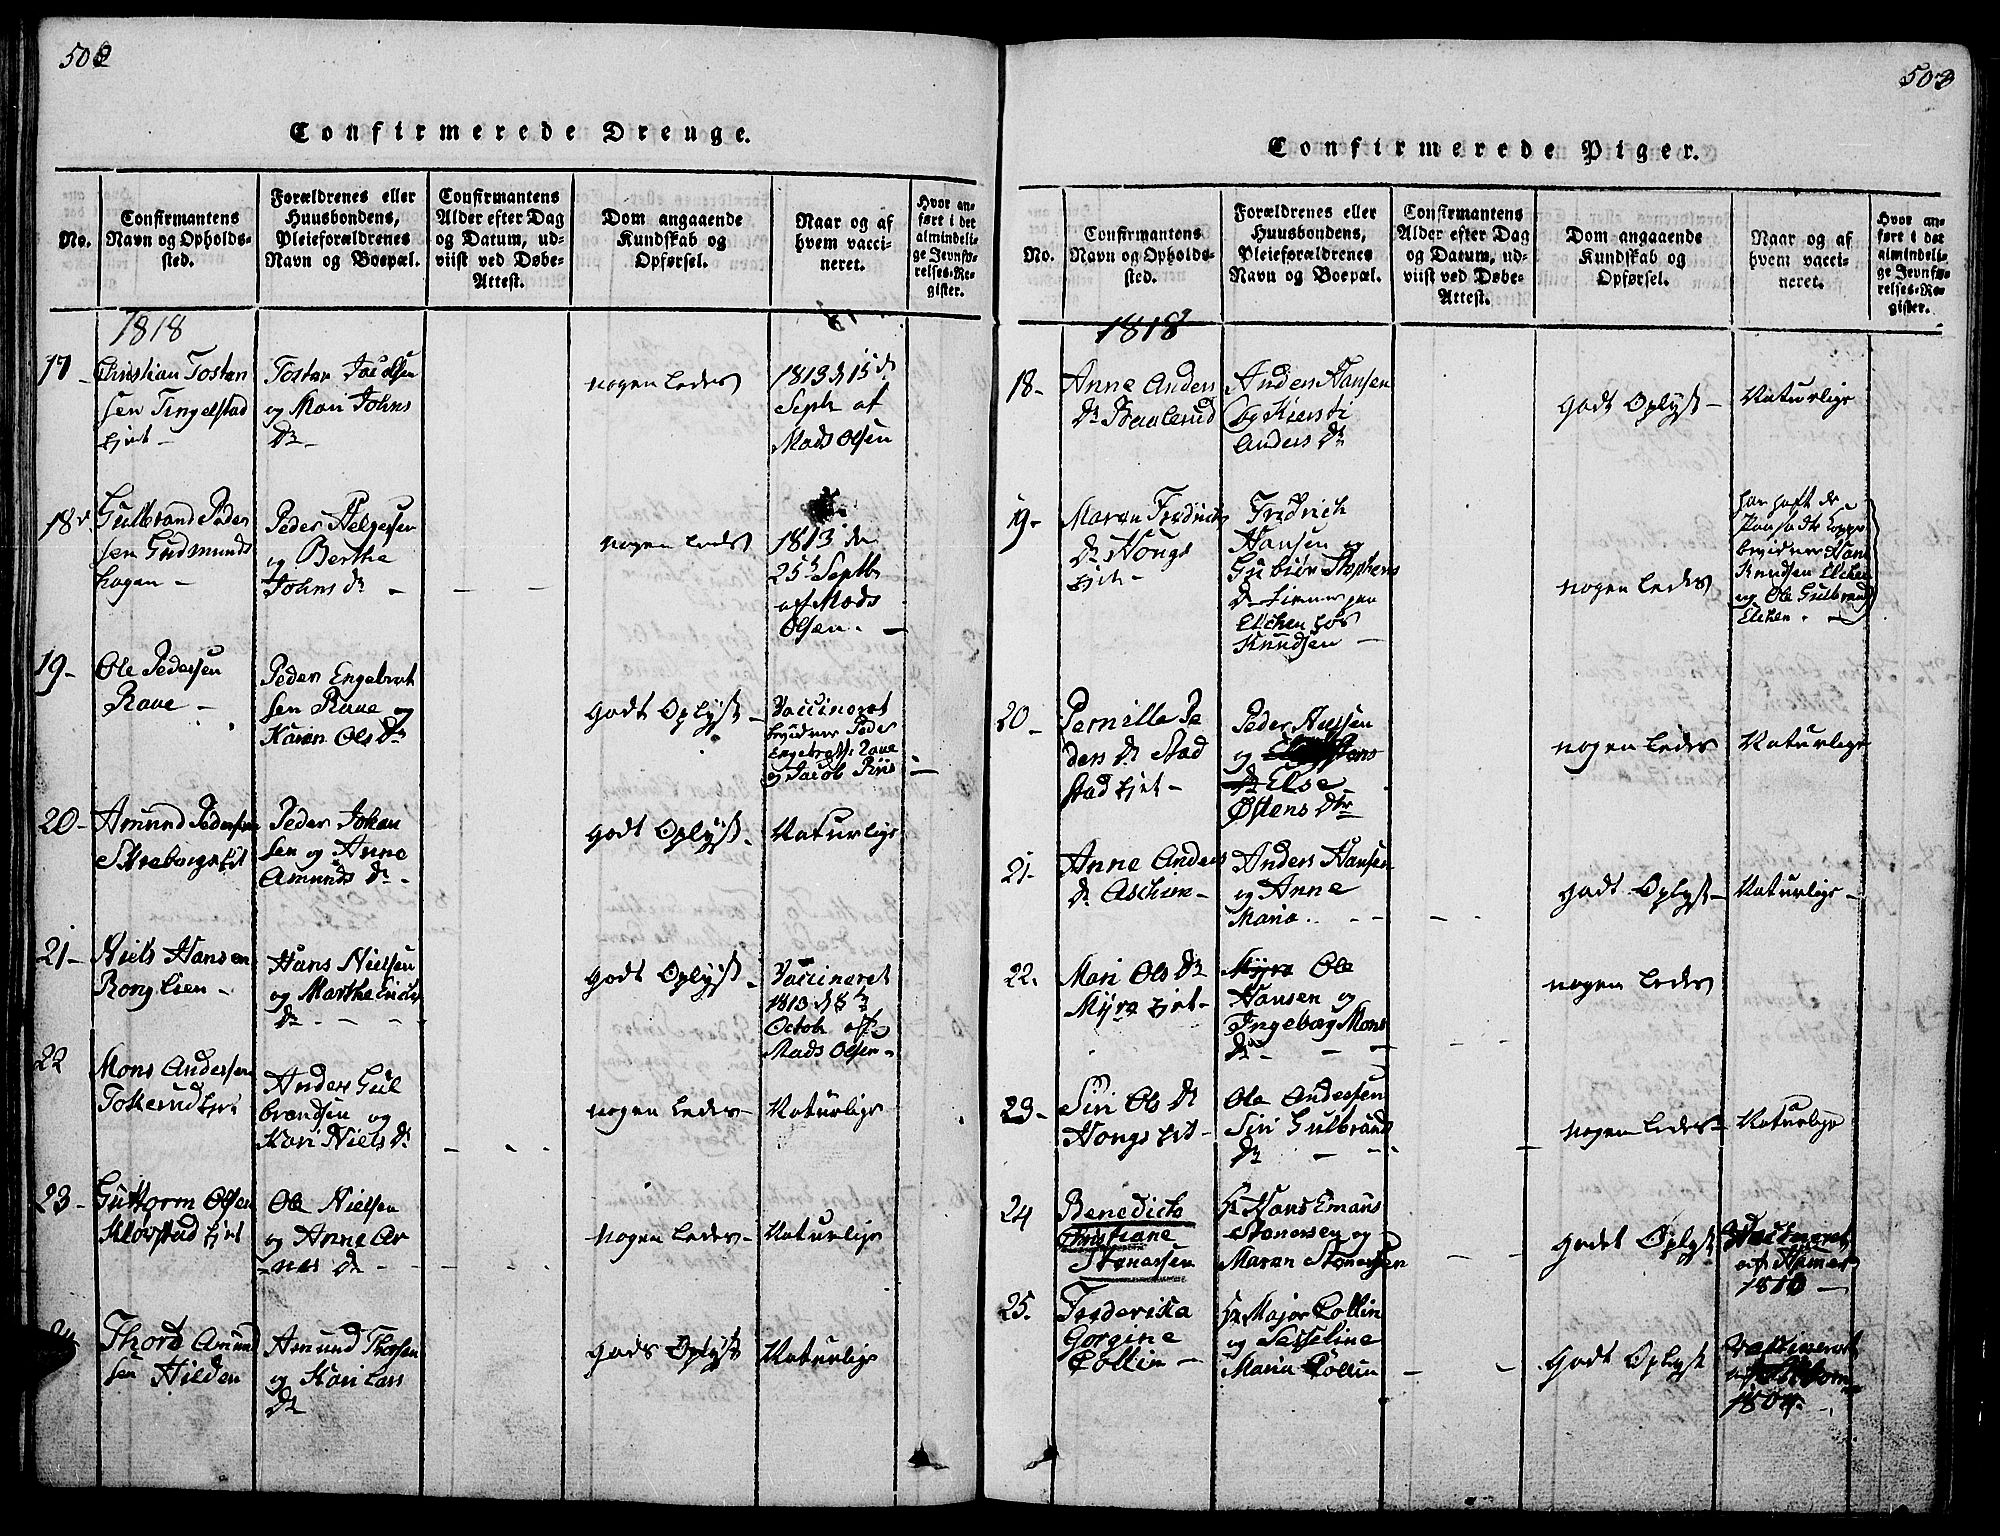 502
Confirmerede Drenge.
No.
Confirmantens
Navn og Opholds-
sted.
Forældrenes eller
Huusbondens,
Pleieforældrenes
Navn og Boepæl.
Confirmantens
Alder efter Dag
og Datum, ud-
viist ved Døbe-
Attest.
Dom angaaende
Kundskab og
Opførsel.
Naar og af
hvem vacci-
neret.
Hvor an-
ført i det
almindeli-
ge Jevnfø-
relses-Re-
gister.
1818
17
Christian Tosten
sen Tingelstad
Ejet -
Tosten
og Mari Johns
Dr -
nogenledes
1813 d 15de
Septb af
Mads Olsen
18
Gulbrand Peder
sen Gudmunds
hagen -
Peder Helgesen
og Berthe
Johns Dr -
nogen ledes
1813 den
25de Septb
af Mads
Olsen. -
19-
Ole Pedersen
Raae -
Peder Engebret
sen Raae og
Karen Ols Dr
Godt Oplyst -
Vaccineret
bevidner Peder
Engebrets: Raae
og Jacob Riis
20-
Amund Pedersen
Peder Johan
sen og Anne
Amunds Dr -
Godt Oplyst
Naturlige
21-
Niels Hansen
Ronglien -
Hans Nielsen
og Marthe Erichs
Dr - - -
Godt Oplyst -
Vaccineret
1813 d 8de
Octob af
Mads Olsen -
22
Mons Andersen
Tokerud
Anders Gul
brandsen og
Kari Niels Dr
nogen ledes -
Naturlige
23-
Guttorm Olsen
Kløvstad Ejet
Ole Nielsen
og Anne Ar
nes Dr -
nogen ledes -
Naturlige
24
Thord Amund
sen Hilden
Amund Thorsen
og Kari Lars
Dr
Godt Oplyst
Naturlige
503
Confirmerede Piger.
No.
Confirmantens
Navn og Opholds-
sted.
Forældrenes eller
Huusbondens,
Pleieforældrenes
Navn og Boepæl.
Confirmantens
Alder efter Dag
og Datum, ud-
viist ved Døbe-
Attest.
Dom angaaende
Kundskab og
Opførsel.
Naar og af
hvem vacci-
neret.
Hvor an-
ført i det
almindeli-
ge Jevnfø-
relses-Re-
gister.
1818
18-
Anne Anders
Dr
Anders Hansen
og Kiersti
Anders Dr
Godt Oplyst -
Naturlige
19-
Maren Fredrichs
Dr Hougs
Ejet -
Fridrich
Hansen og
Gubiør Stephens
Dr
Elchen hos
Knudsen -
nogen ledes
har haft de
Kopper
bevidner Hans
Knudsen Elchen
og Ole Gulbrand
Elchen. -
20-
Pernille Pe
ders Dr Stad
Stad Ejet -
Peder
og
Dr Else
Østens Dtr
nogen ledes
Naturlige
21-
Anne Anders
Dr Aschim -
Anders Hansen
og Anne
Maria. - -
Godt Oplyst -
Naturlige -
22.
Mari Ols Dr
Myra Ejet -
Myra Ole
Hansen og
Ingeborg Mons
Dr - - -
nogen ledes
23-
Siri Ols Dr
Hougs Ejet -
Ole Andersen
Siri Gulbrands
Dr - -
nogen ledes -
Naturlige
24
Benedicte
Christiane
Stenersen
Hr Hans Emanus
Stenersen og
Maren Stenersen
Godet Oplyst
Vaccineret
af
1810 -
25.
Frederika
Gorgine
Collin -
Hr Major Collin
og Sesseline
Maria Collin
Godt Oplyst
Vaccineret
af